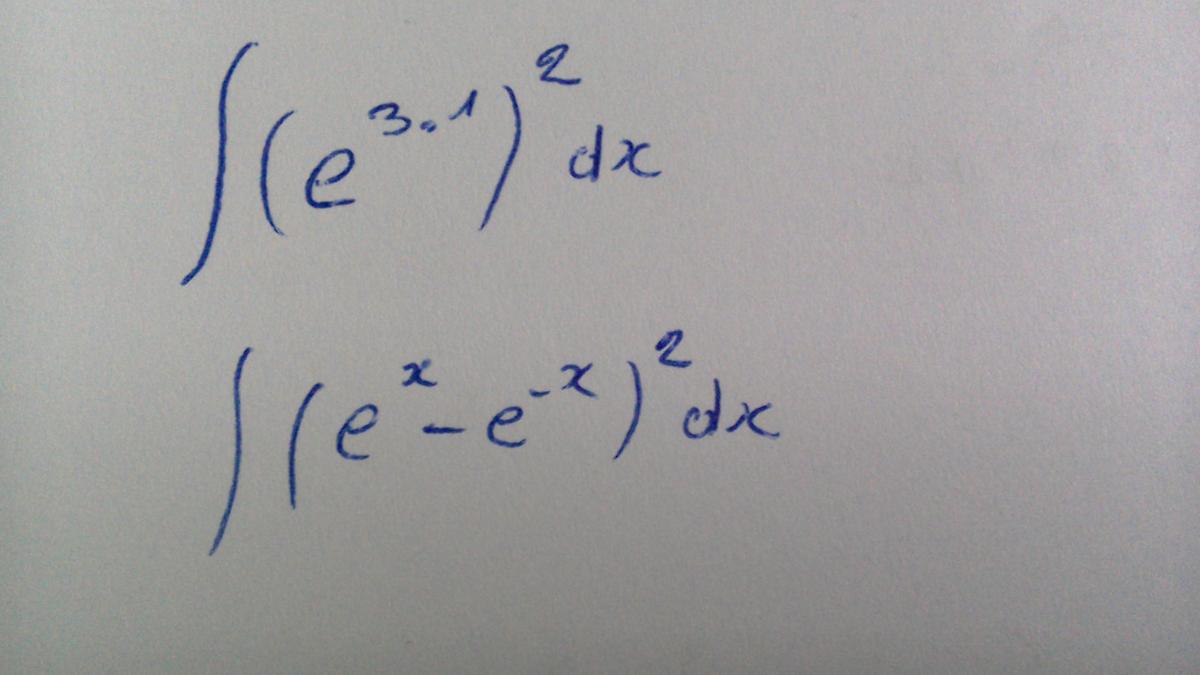 ∫(e^{3.1})^2 dx
∫(e^x - e^{-x})^2 dx